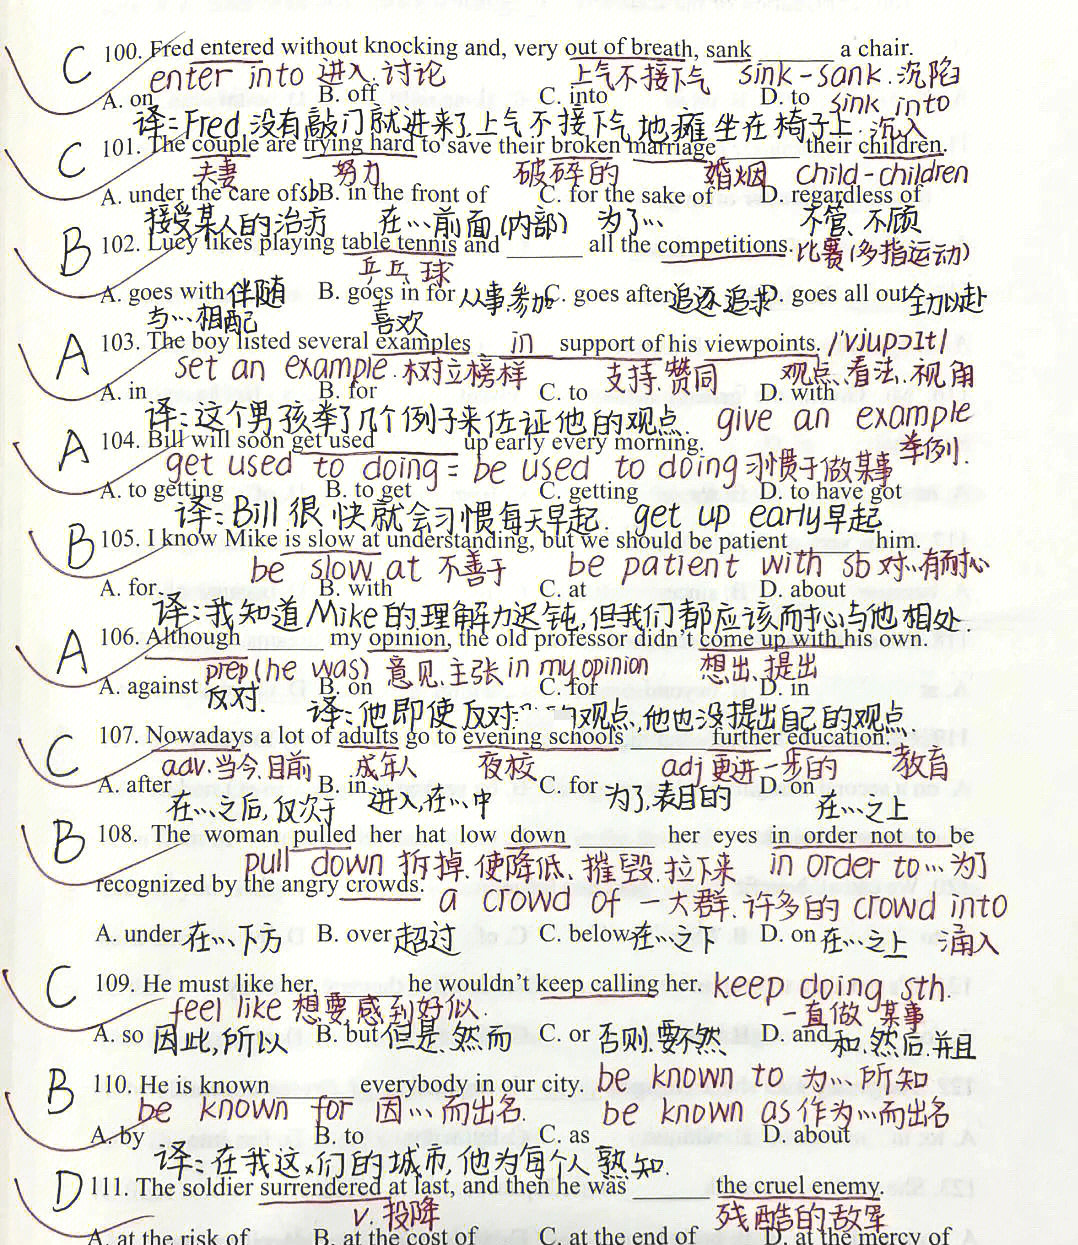 C 100. Fred entered without knocking and, very out of breath, sank ______ a chair.
enter into 进入.讨论 上气不接下气 sink-sank.沉陷
A. on B. off C. into D. to sink into
译:Fred没有敲门就进来了,上气不接下气地瘫坐在椅子上.沉入
C 101. The couple are trying hard to save their broken marriage ______ their children.
夫妻 努力 破碎的 婚烟 child-children
A. under the care of sb B. in the front of C. for the sake of D. regardless of
接受某人的治疗 在…前面(内部) 为了… 不管、不顾
B 102. Lucy likes playing table tennis and ______ all the competitions. 比赛(多指运动)
乒乓球
A. goes with 伴随 B. goes in for 从事.参加 C. goes after 追逐.追求 D. goes all out 全力以赴
与…相配 喜欢
A 103. The boy listed several examples in support of his viewpoints. /'vjupɔɪt/
set an example.树立榜样 支持.赞同 观点.看法.视角
A. in B. for C. to D. with
译:这个男孩举了几个例子来佐证他的观点. give an example
A 104. Bill will soon get used ______ up early every morning. 举例.
get used to doing = be used to doing 习惯于做某事
A. to getting B. to get C. getting D. to have got
译:Bill很快就会习惯每天早起. get up early早起
B 105. I know Mike is slow at understanding, but we should be patient ______ him.
be slow at 不善于 be patient with sb 对…有耐心
A. for B. with C. at D. about
译:我知道Mike的理解力迟钝,但我们都应该耐心与他相处.
A 106. Although ______ my opinion, the old professor didn't come up with his own.
prep (he was) 意见.主张 in my opinion 想出.提出
A. against B. on C. for D. in
反对. 译:他即使反对 观点,他也没提出自己的观点.
C 107. Nowadays a lot of adults go to evening schools ______ further education.
adv.当今.目前 成年人 夜校 adj 更进一步的 教育
A. after B. in C. for D. on
在…之后,仅次于 进入.在…中 为了.表目的 在…之上
B 108. The woman pulled her hat low down ______ her eyes in order not to be
pull down 拆掉.使降低、摧毁.拉下来 in order to…为了
recognized by the angry crowds.
a crowd of 一大群.许多的 crowd into
A. under 在…下方 B. over 超过 C. below 在…之下 D. on 在…之上 涌入
C 109. He must like her, ______ he wouldn't keep calling her. keep doing sth.
feel like 想要.感到好似. 一直做某事
A. so 因此,所以 B. but 但是.然而 C. or 否则.要不然 D. and 和.然后.并且
B 110. He is known ______ everybody in our city. be known to 为…所知
be known for 因…而出名. be known as 作为…而出名
A. by B. to C. as D. about
译:在我这们的城市,他为每个人熟知.
D 111. The soldier surrendered at last, and then he was ______ the cruel enemy.
v.投降 残酷的敌军
A. at the risk of B. at the cost of C. at the end of D. at the mercy of